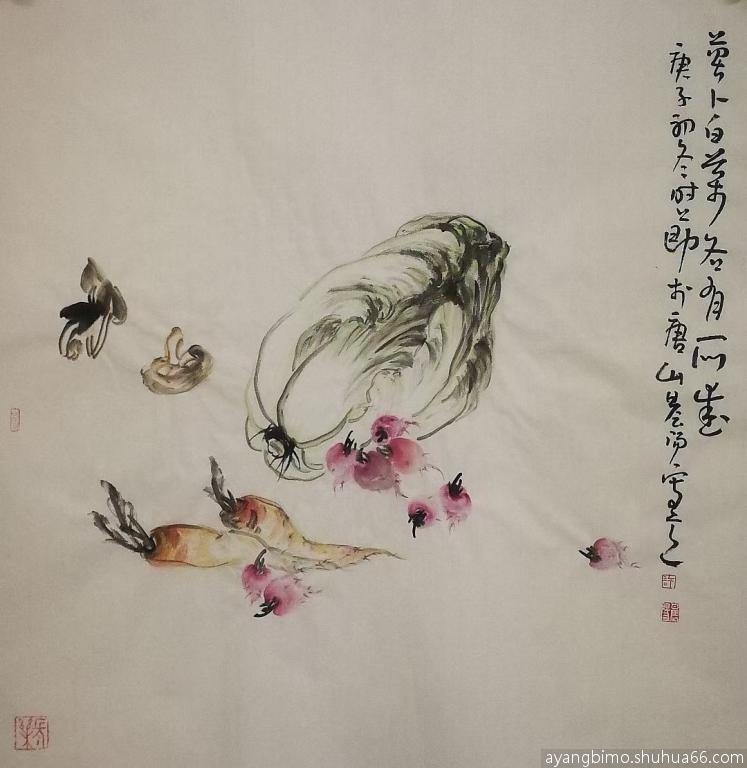 萝卜白菜各有所爱
庚子初冬时节于唐山晨阳写之
ayangbimo.shuhua66.com